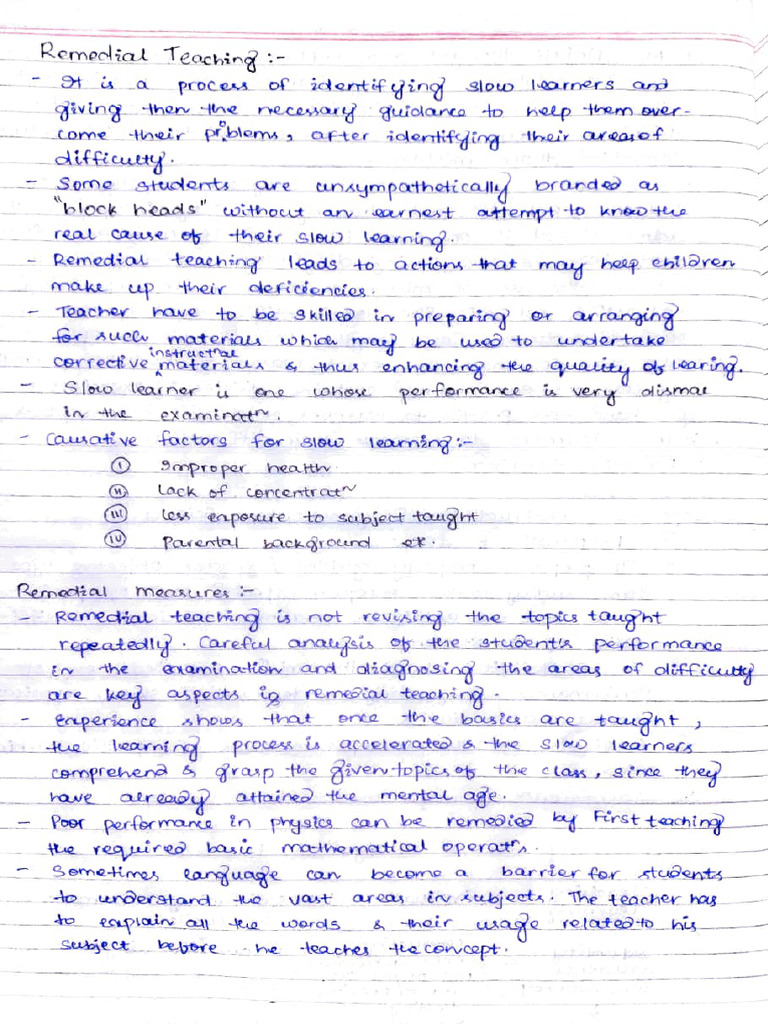 Remedial Teaching :-
- It is a process of identifying slow learners and
giving then the necessary guidance to help them over-
come their problems, after identifying their areas of
difficulty.
- Some students are unsympathetically branded as
"block heads" without an earnest attempt to know the
real cause of their slow learning.
- Remedial teaching leads to actions that may help children
make up their deficiencies.
- Teacher have to be skilled in preparing or arranging
for such materials which may be used to undertake
instructnal
corrective ^ materials & thus enhancing the quality of learing.
- Slow learner is one whose performance is very dismal
in the examinatn.
- Causative factors for slow learning :-
(i) Improper health
(ii) Lack of concentratn
(iii) Less exposure to subject taught
(iv) Parental background etc.
Remedial measures :-
- Remedial teaching is not revising the topics taught
repeatedly. Careful analysis of the student's performance
in the examination and diagnosing the areas of difficulty
are key aspects in remedial teaching.
- Experience shows that once the basics are taught,
the learning process is accelerated & the slow learners
comprehend & grasp the given topics of the class, since they
have already attained the mental age.
- Poor performance in physics can be remedied by First teaching
the required basic mathematical operatns.
- Sometimes language can become a barrier for students
to understand the vast areas in subjects. The teacher has
to explain all the words & their usage related to his
subject before he teaches the concept.